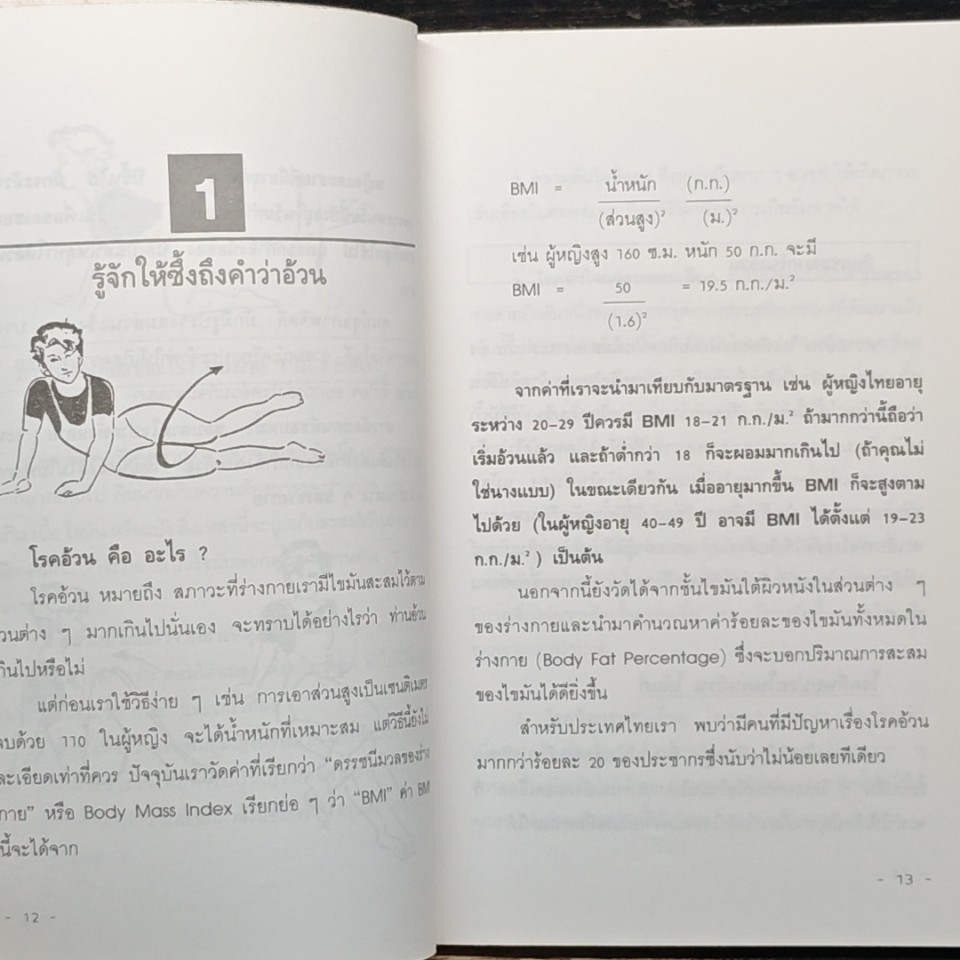 1
รู้จักให้ซึ้งถึงคำว่าอ้วน
โรคอ้วน คือ อะไร ?
โรคอ้วน หมายถึง สภาวะที่ร่างกายเรามีไขมันสะสมไว้ตาม
วนต่าง ๆ มากเกินไปนั่นเอง จะทราบได้อย่างไรว่า ท่านอ้วน
กินไปหรือไม่
แต่ก่อนเราใช้วิธีง่าย ๆ เช่น การเอาส่วนสูงเป็นเซนติเมตร
ลบด้วย 110 ในผู้หญิง จะได้น้ำหนักที่เหมาะสม แต่วิธีนี้ยังไม่
ละเอียดเท่าที่ควร ปัจจุบันเราวัดค่าที่เรียกว่า “ดรรชนีมวลของร่าง
กาย” หรือ Body Mass Index เรียกย่อ ๆ ว่า “BMI” ค่า BMI
นี้จะได้จาก
- 12 -
BMI = น้ำหนัก (ก.ก.)
(ส่วนสูง)² (ม.)²
เช่น ผู้หญิงสูง 160 ซ.ม. หนัก 50 ก.ก. จะมี
BMI = 50 = 19.5 ก.ก./ม.²
(1.6)²
จากค่าที่เราจะนำมาเทียบกับมาตรฐาน เช่น ผู้หญิงไทยอายุ
ระหว่าง 20-29 ปีควรมี BMI 18-21 ก.ก./ม.² ถ้ามากกว่านี้ถือว่า
เริ่มอ้วนแล้ว และถ้าต่ำกว่า 18 ก็จะผอมมากเกินไป (ถ้าคุณไม่
ใช่นางแบบ) ในขณะเดียวกัน เมื่ออายุมากขึ้น BMI ก็จะสูงตาม
ไปด้วย (ในผู้หญิงอายุ 40-49 ปี อาจมี BMI ได้ตั้งแต่ 19-23
ก.ก./ม.² ) เป็นต้น
นอกจากนี้ยังวัดได้จากชั้นไขมันใต้ผิวหนังในส่วนต่าง ๆ
ของร่างกายและนำมาคำนวณหาค่าร้อยละของไขมันทั้งหมดใน
ร่างกาย (Body Fat Percentage) ซึ่งจะบอกปริมาณการสะสม
ของไขมันได้ดียิ่งขึ้น
สำหรับประเทศไทยเรา พบว่ามีคนที่มีปัญหาเรื่องโรคอ้วน
มากกว่าร้อยละ 20 ของประชากรซึ่งนับว่าไม่น้อยเลยทีเดียว
- 13 -